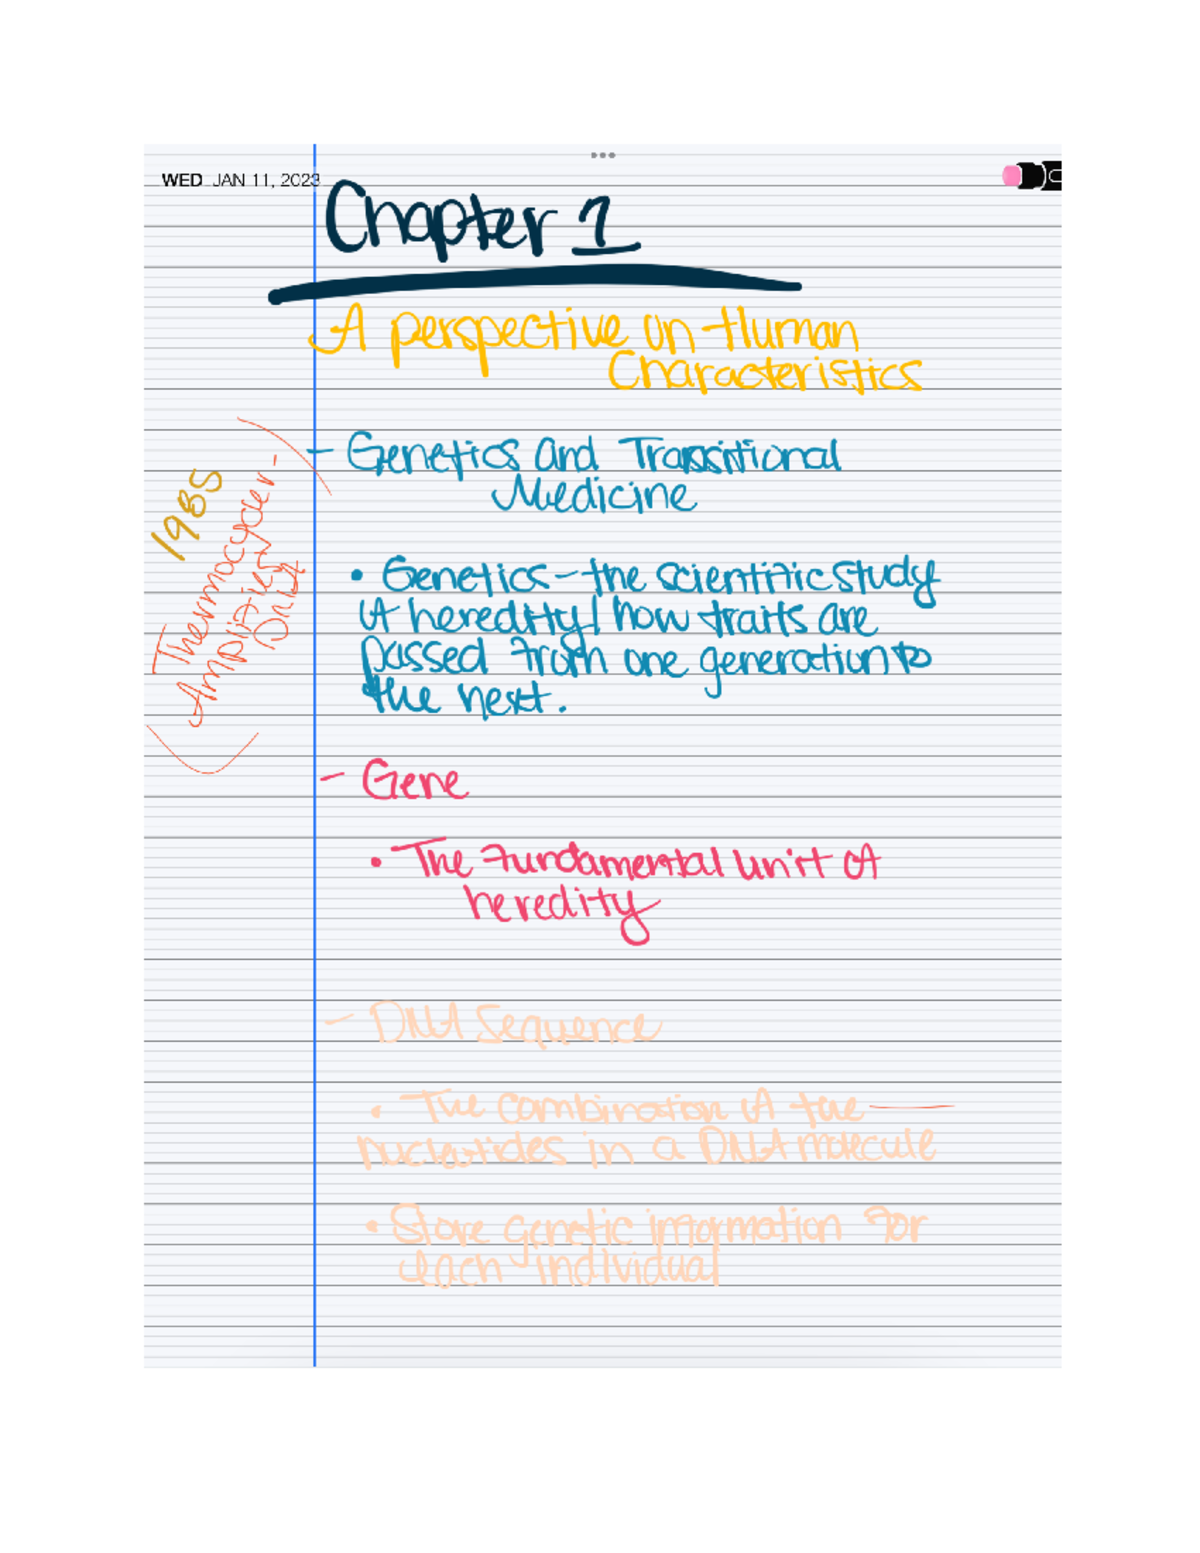 WED JAN 11, 2023
Chapter 1
A perspective on Human
Characteristics
- Genetics and Transitional
Medicine
• Genetics - the scientific study
of heredity / how traits are
passed from one generation to
the next.
1985
Thermocycler -
Amplifies
DNA
- Gene
• The fundamental unit of
heredity
- DNA Sequence
• The combination of the
nucleotides in a DNA molecule
• Store genetic information for
each individual